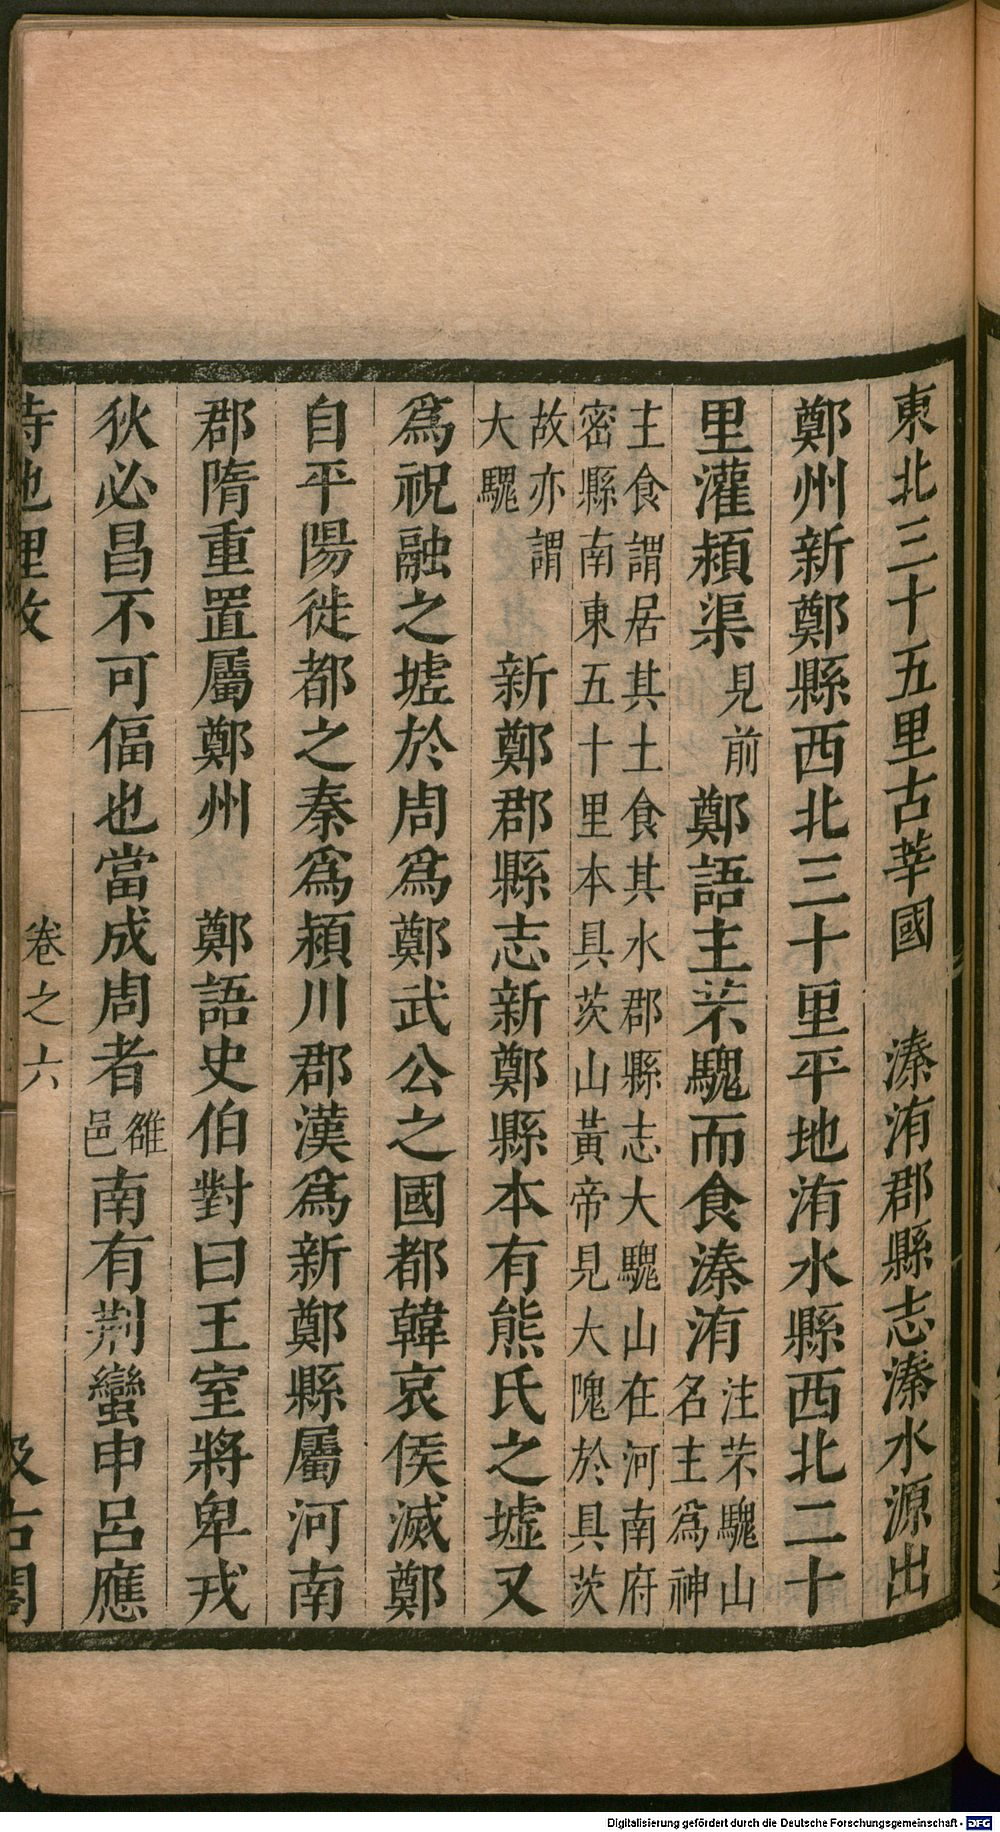 東北三十五里古莘國　溱洧郡縣志溱水源出
鄭州新鄭縣西北三十里平地洧水縣西北二十
里灌潁渠見前鄭語主芣騩而食溱洧注芣騩山名主爲神
主食謂居其土食其水郡縣志大騩山在河南府
密縣南東五十里本具茨山黃帝見大隗於具茨
故亦謂
大騩　新鄭郡縣志新鄭縣本有熊氏之墟又
爲祝融之墟於周爲鄭武公之國都韓哀侯滅鄭
自平陽徙都之秦爲潁川郡漢爲新鄭縣屬河南
郡隋重置屬鄭州　鄭語史伯對曰王室將卑戎
狄必昌不可偪也當成周者雒邑南有荆蠻申呂應
詩地理攷　卷之六　汲古閣
Digitalisierung gefördert durch die Deutsche Forschungsgemeinschaft - DFG